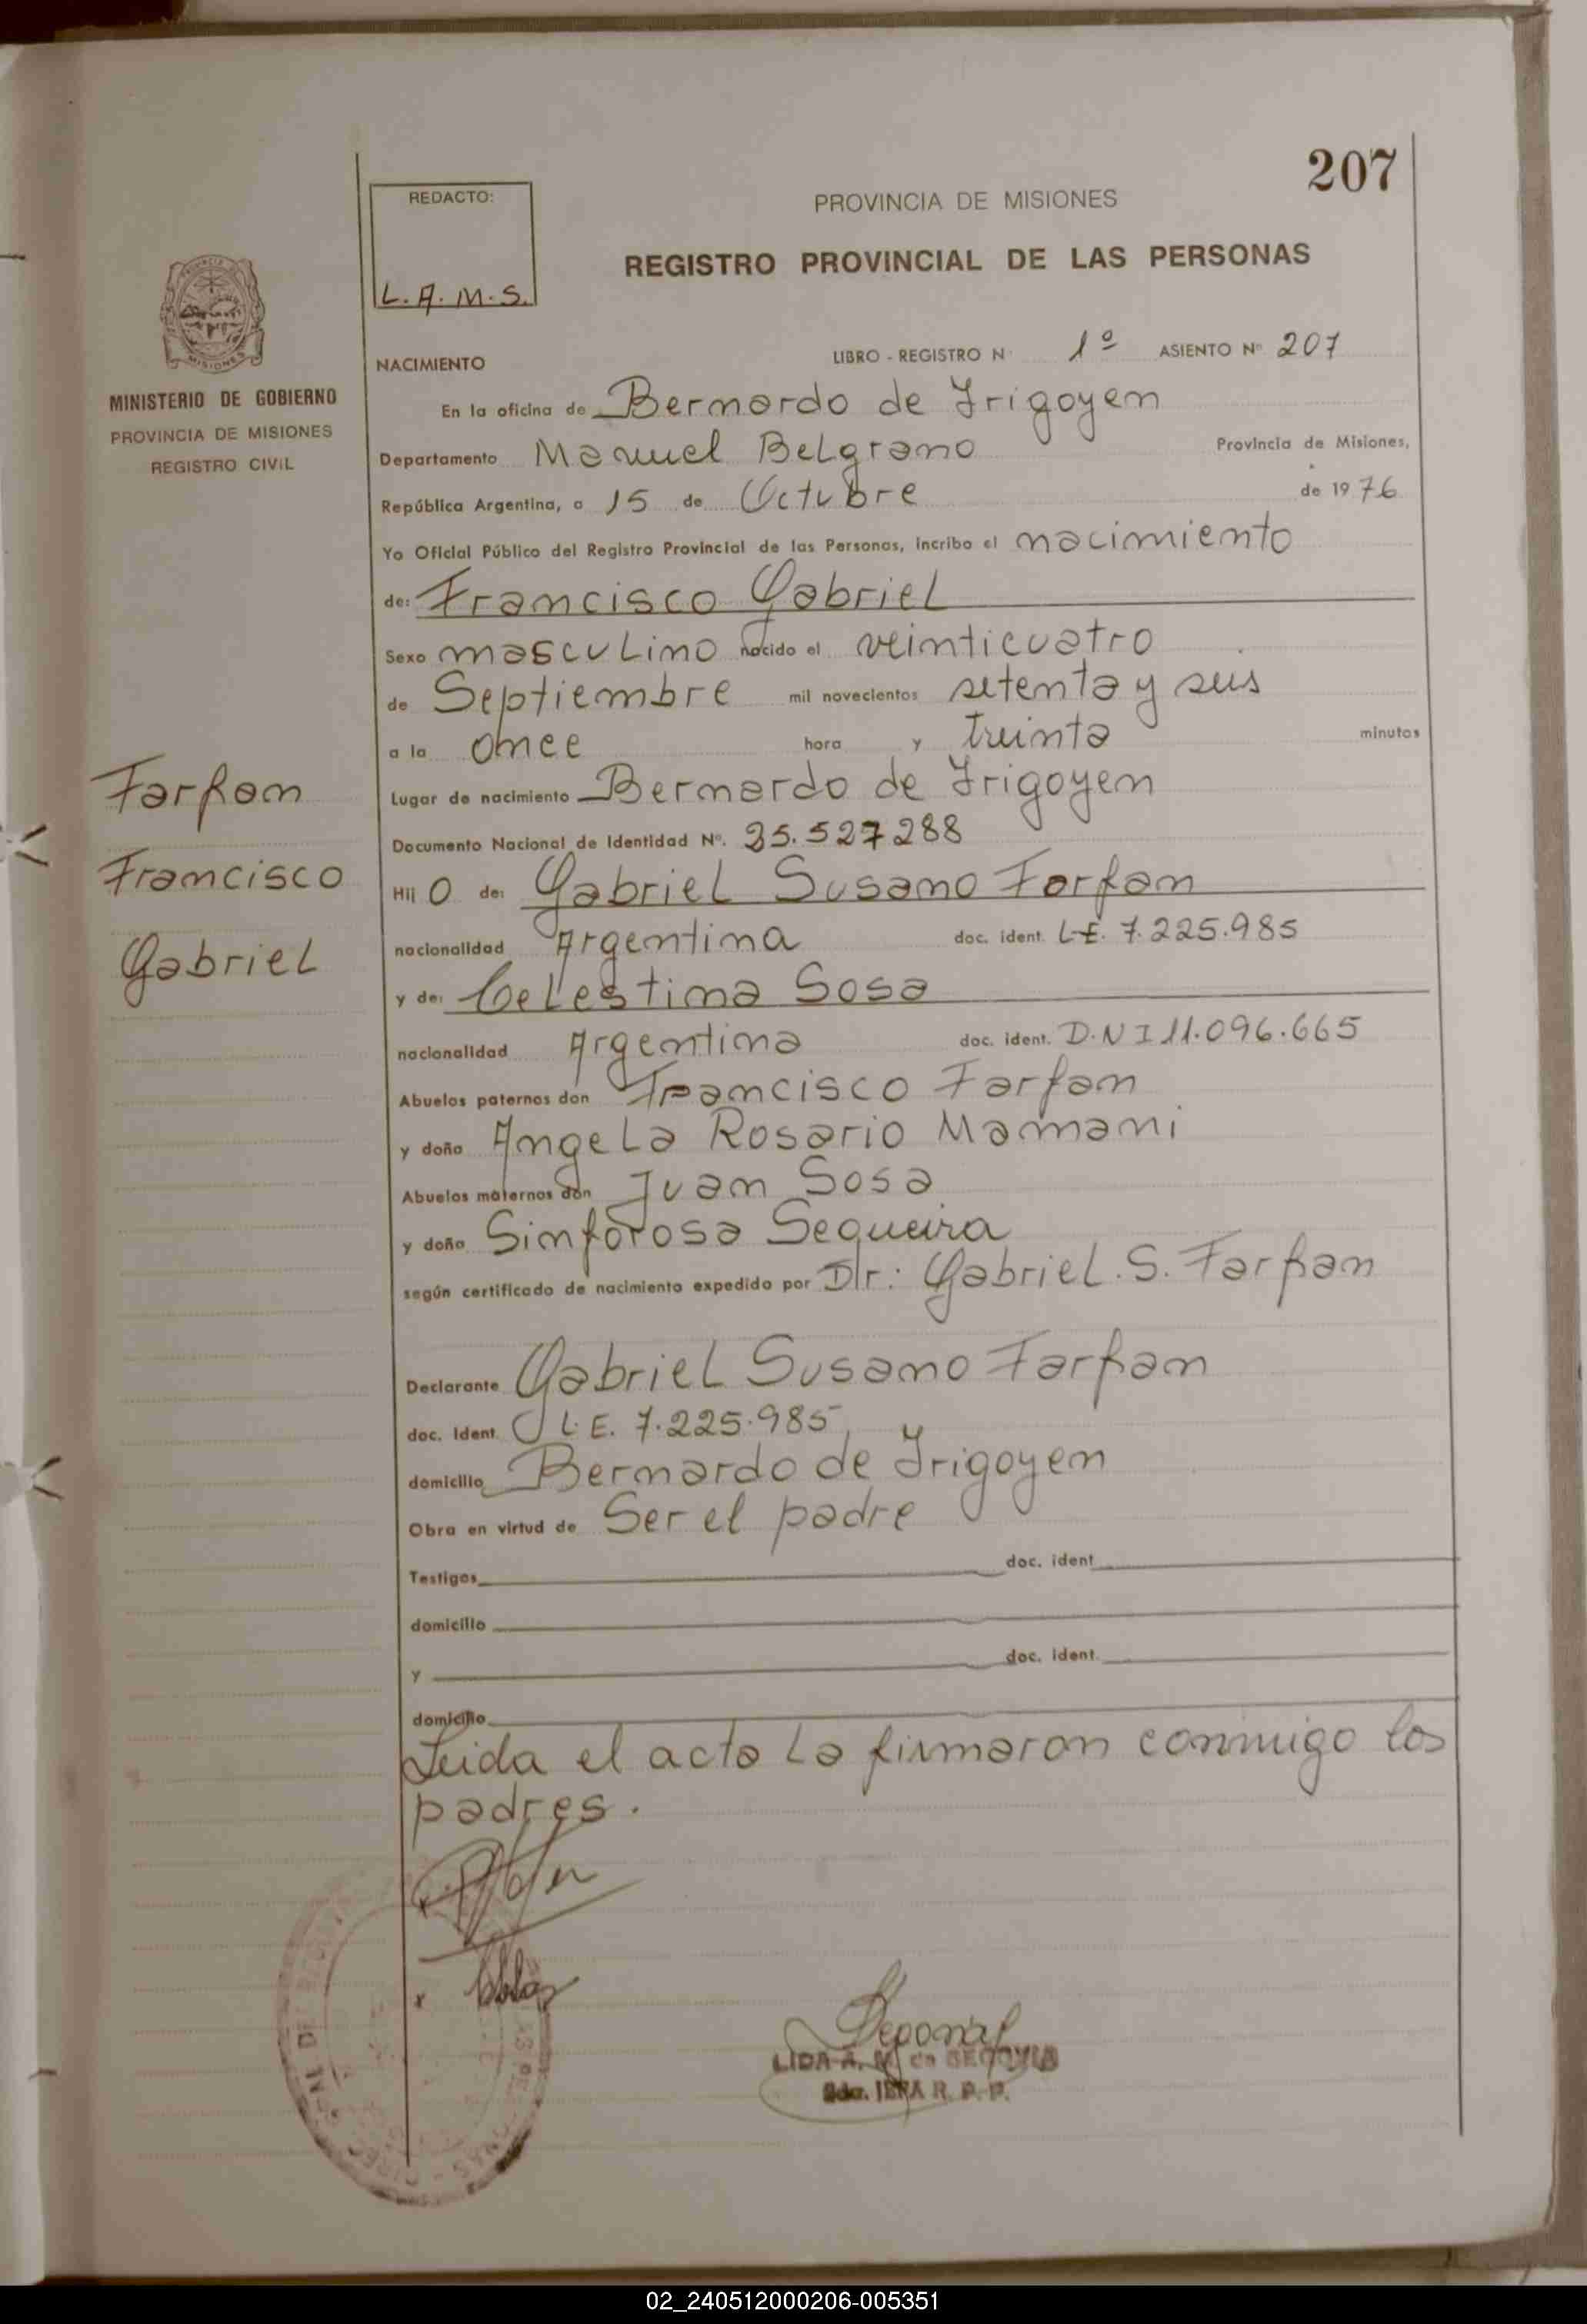 207
REDACTO:
L. A. M. S.
PROVINCIA DE MISIONES
REGISTRO PROVINCIAL DE LAS PERSONAS
MINISTERIO DE GOBIERNO
PROVINCIA DE MISIONES
REGISTRO CIVIL
NACIMIENTO LIBRO - REGISTRO N° 1º ASIENTO Nº 207
En la oficina de Bernardo de Irigoyen
Departamento Manuel Belgrano Provincia de Misiones,
República Argentina, a 15 de Octubre de 1976
Yo Oficial Público del Registro Provincial de las Personas, incribo el nacimiento
de: Francisco Gabriel
Sexo masculino nacido el veinticuatro
de Septiembre mil novecientos setenta y seis
a la once hora y treinta minutos
Lugar de nacimiento Bernardo de Irigoyen
Documento Nacional de Identidad Nº. 25.527288
Hij O de: Gabriel Susano Farfan
nacionalidad Argentina doc. ident. L.E. 7.225.985
y de: Celestina Sosa
nacionalidad Argentina doc. ident. D.N I 11.096.665
Abuelos paternos don Francisco Farfan
y doña Angela Rosario Mamani
Abuelos maternos don Juan Sosa
y doña Simforosa Sequeira
según certificado de nacimiento expedido por Dr: Gabriel. S. Farfan
Declarante Gabriel Susano Farfan
doc. Ident. L.E. 7.225.985
domicilio Bernardo de Irigoyen
Obra en virtud de Ser el padre
Testigos doc. ident
domicilio
y doc. ident.
domicilio
Leida el acta la firmaron conmigo los
padres.
Farfan
Francisco
Gabriel
LIDA A. M. de SEGOVIA
2da. JEFA R. P. P.
02_240512000206-005351